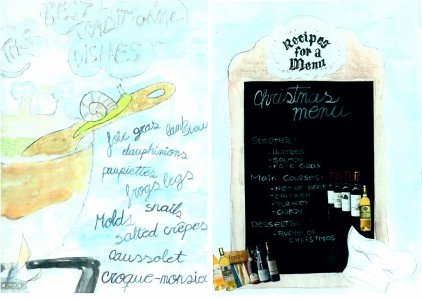 BEST
TRADITIONAL
DISHES
foie gras
dauphinions
paupiettes
frogs legs
snails
Molds
salted crêpes
caussolet
croque-monsie
Recipes
for a
Menu
Christmas
menu
Starter:
- SALMON
- FOIE GRAS
Main Courses:
- CHICKEN
- TURKEY
- CAPON
Desserts:
- BUCHE OF
CHRISTMAS